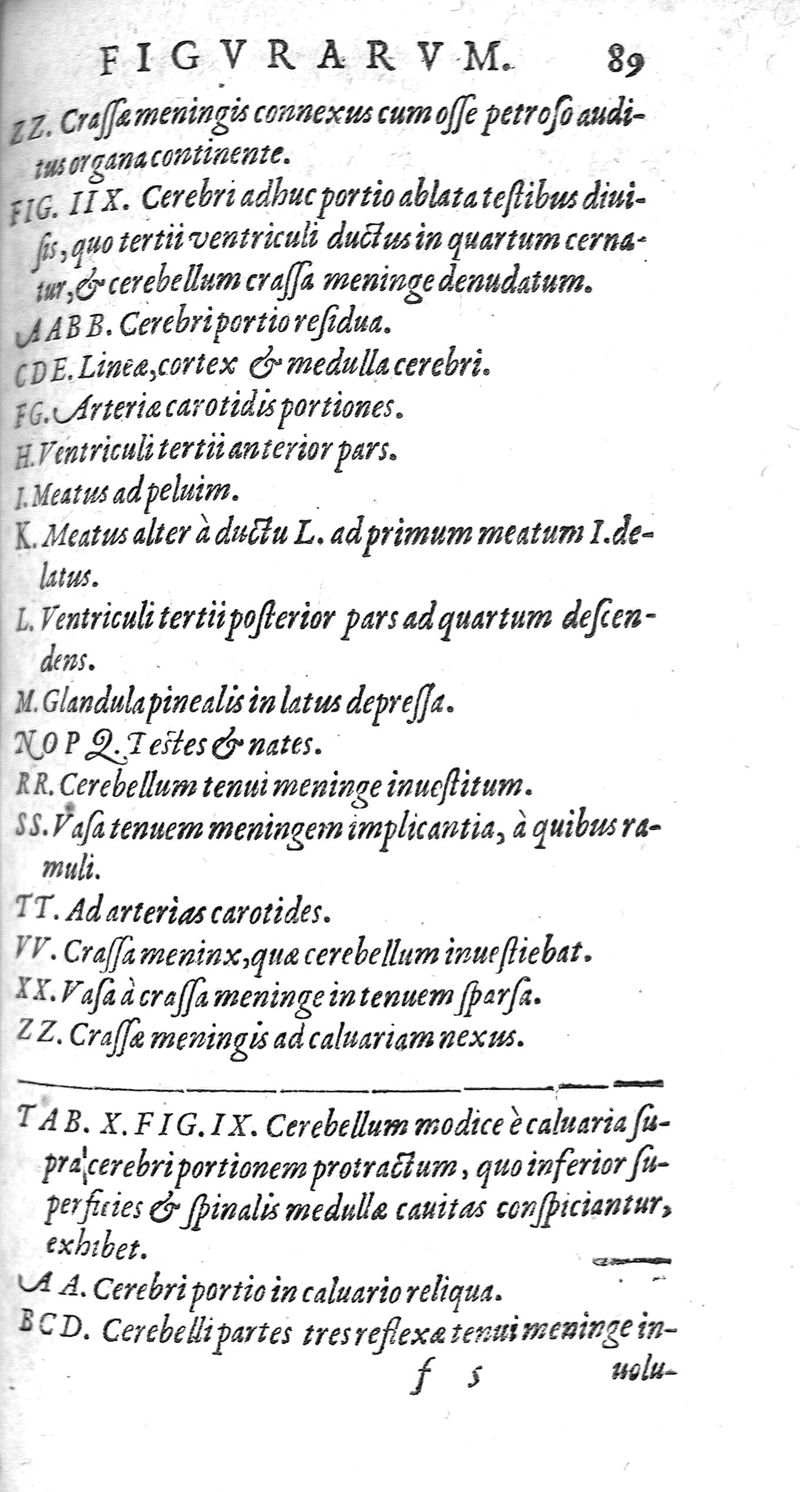 FIGVRARVM. 89
ZZ. Craſſæ meningis connexus cum oſſe petroſo audi-
tus organa continente.
FIG. IIX. Cerebri adhuc portio ablata teſtibus diui-
ſis, quo tertii ventriculi ductus in quartum cerna-
tur, & cerebellum craſſa meninge denudatum.
AABB. Cerebri portio reſidua.
CDE. Lineæ, cortex & medulla cerebri.
FG. Arteriæ carotidis portiones.
H. Ventriculi tertii anterior pars.
I. Meatus ad peluim.
K. Meatus alter à ductu L. ad primum meatum I. de-
latus.
L. Ventriculi tertii poſterior pars ad quartum deſcen-
dens.
M. Glandula pinealis in latus depreſſa.
NOPQ. Teſtes & nates.
RR. Cerebellum tenui meninge inueſtitum.
SS. Vaſa tenuem meningem implicantia, à quibus ra-
muli.
TT. Ad arterias carotides.
VV. Craſſa meninx, quæ cerebellum inueſtiebat.
XX. Vaſa à craſſa meninge in tenuem ſparſa.
ZZ. Craſſæ meningis ad caluariam nexus.
TAB. X. FIG. IX. Cerebellum modice è caluaria ſu-
pra cerebri portionem protractum, quo inferior ſu-
perficies & ſpinalis medullæ cauitas conſpiciantur,
exhibet.
AA. Cerebri portio in caluario reliqua.
BCD. Cerebelli partes tres reflexæ tenui meninge in-
f 5 uolu-